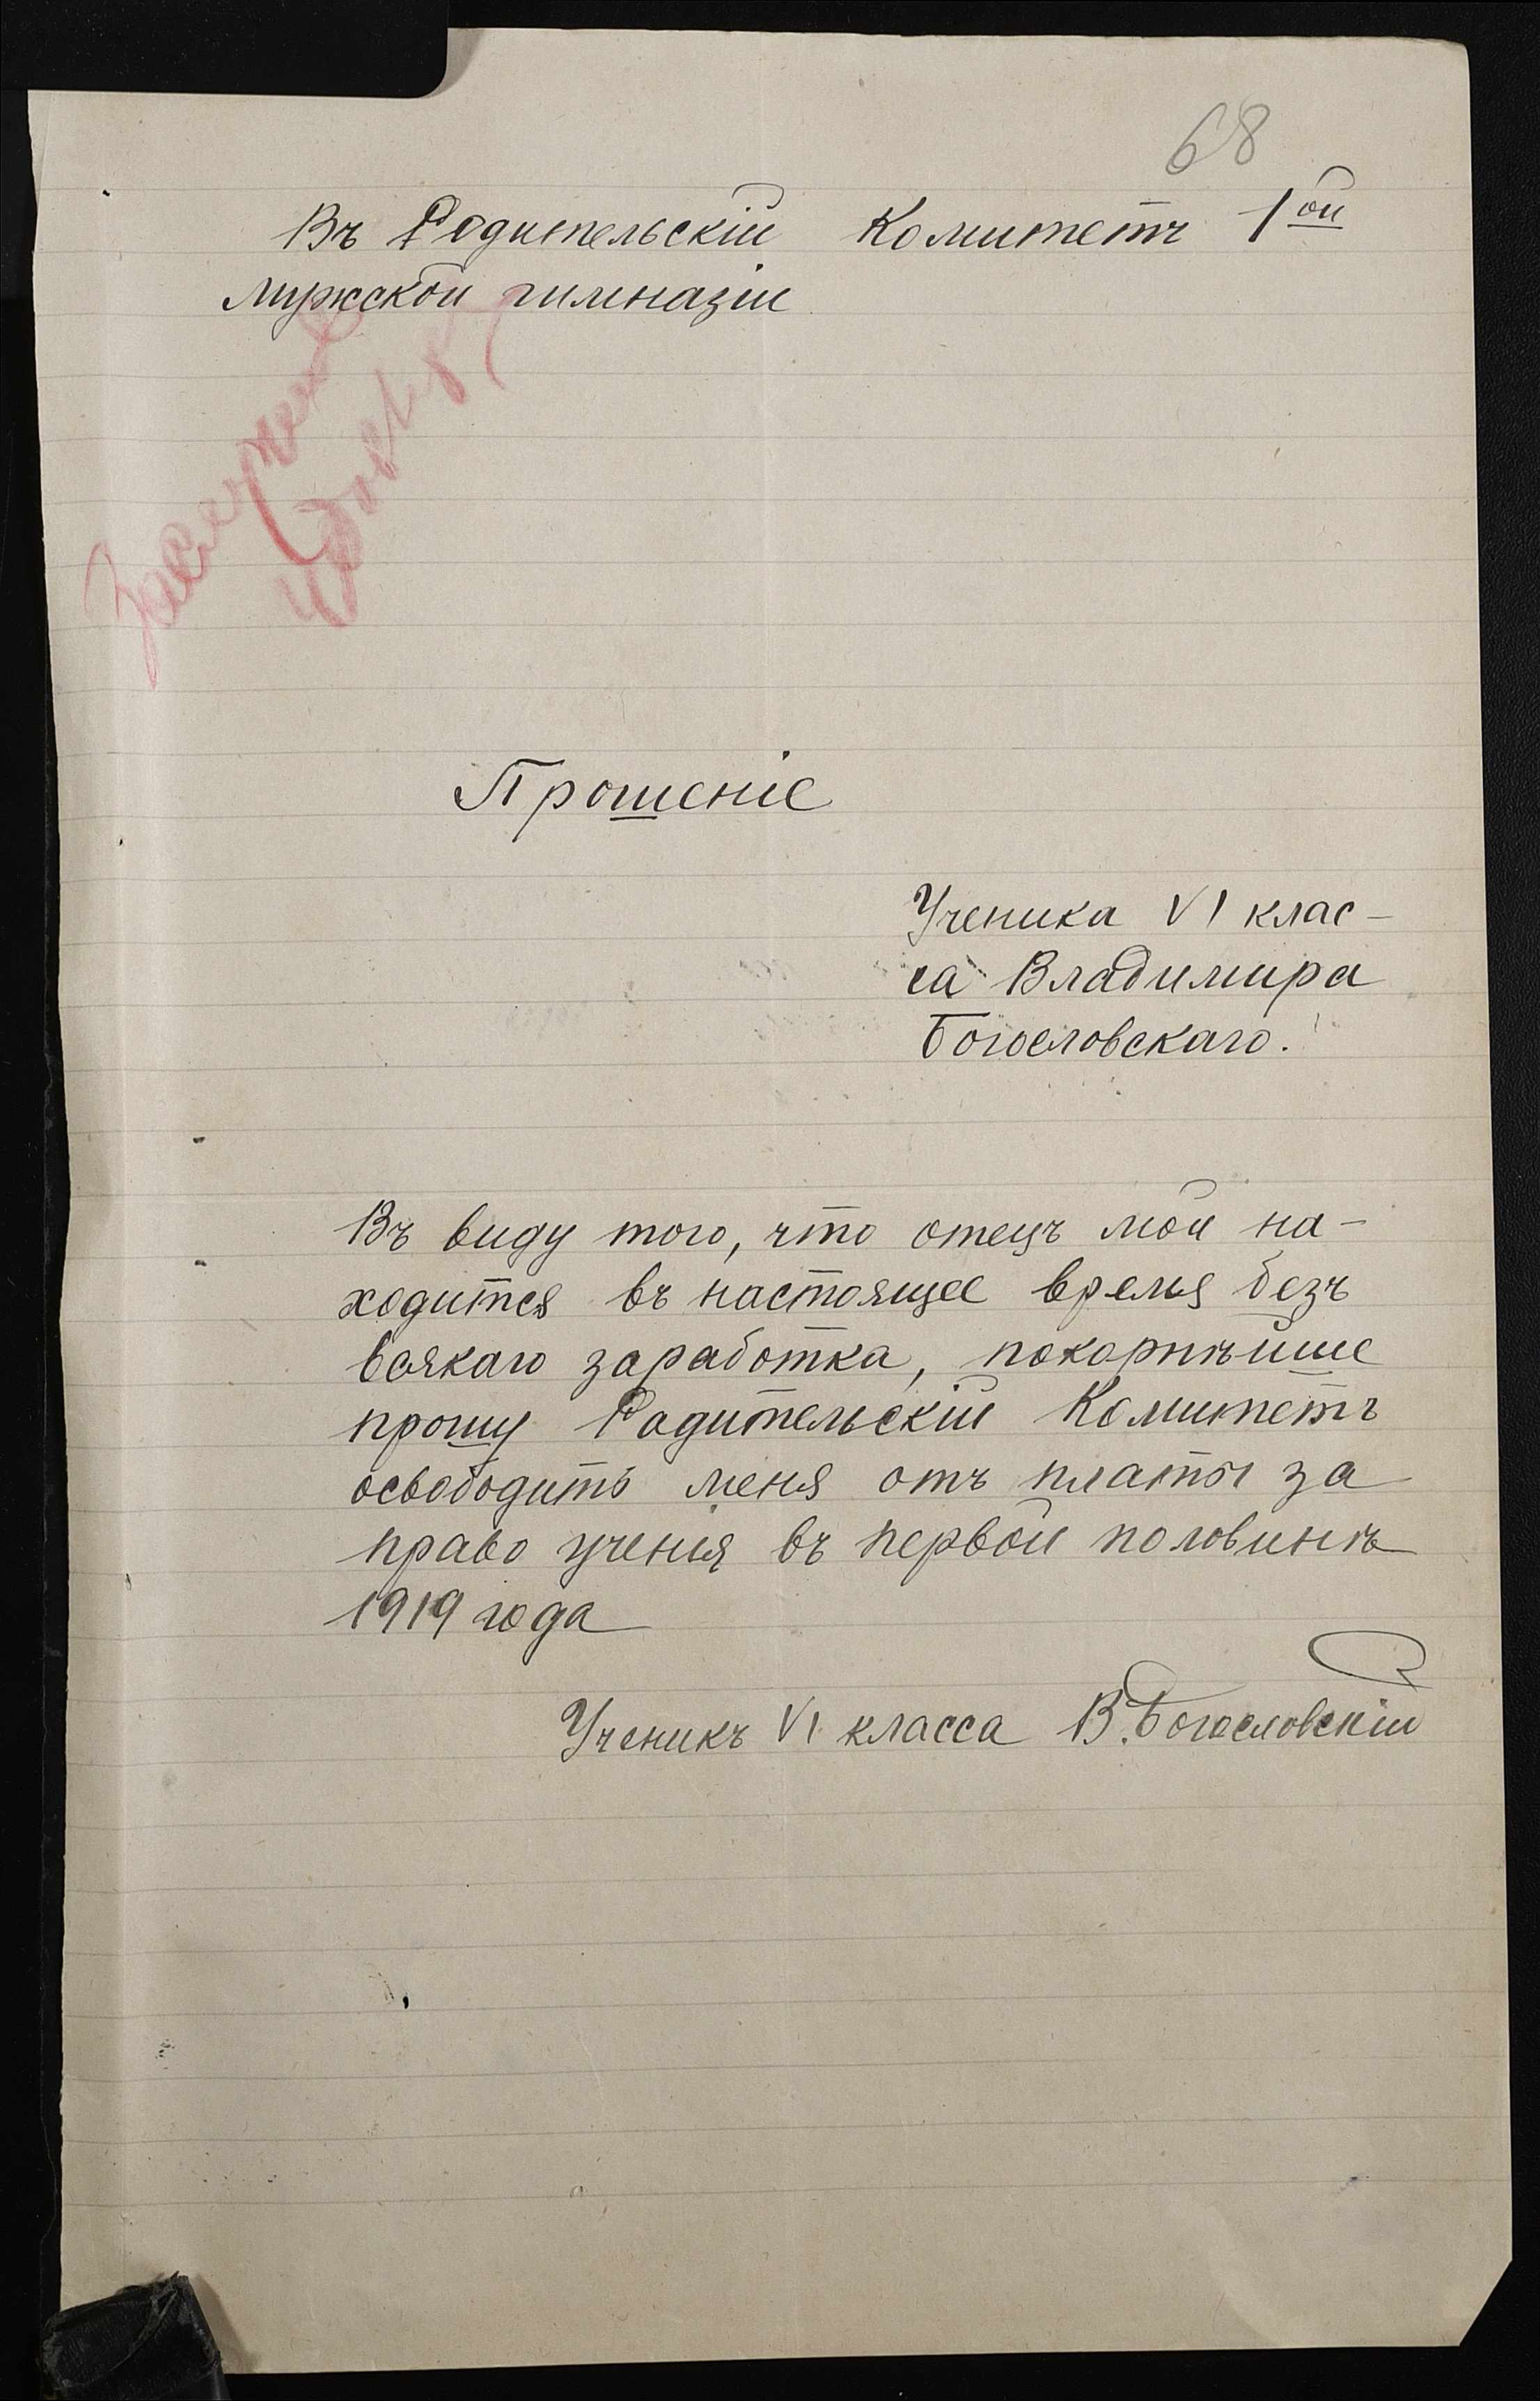 68
Въ Родительскій Комитетъ 1ой
мужской гимназіи
Прошеніе
Ученика VI клас-
са Владимира
Богословскаго.
Въ виду того, что отецъ мой на-
ходится въ настоящее время безъ
всякаго заработка, покорнѣйше
прошу Родительскій Комитетъ
освободить меня отъ платы за
право ученія въ первой половинѣ
1919 года
Ученикъ VI класса В. Богословскій